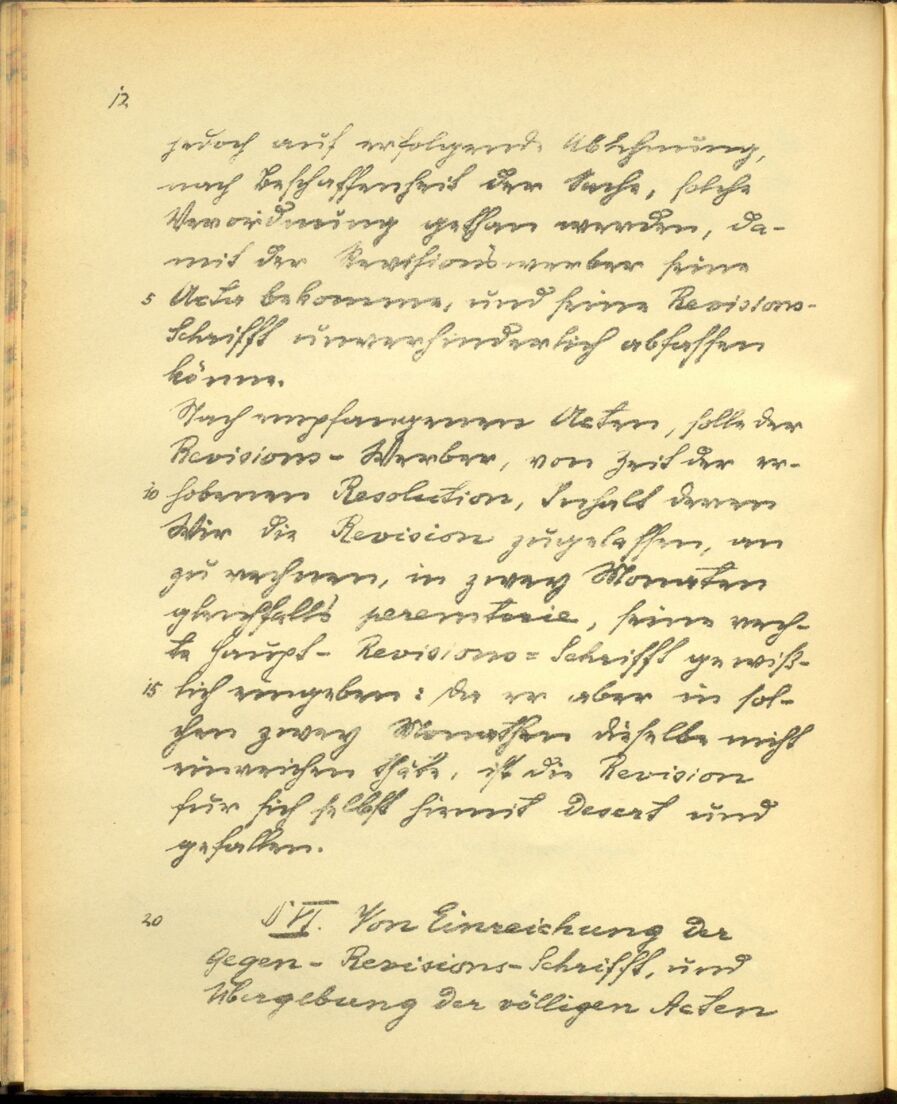 12
jedoch auf erfolgende Ablehnung,
nach Beschaffenheit der Sache, solche
Verordnung gethan werden, da-
mit der Revisionswerber seine
5 Acta bekomme, und seine Revisions-
Schrifft unverhinderlich abfassen
könne.
Nach empfangenen Acten, solle der
Revisions- Werber, von Zeit der er-
10 hobenen Resolution, Inhalt deren
Wir die Revision zugelassen, an
zu rechnen, in zwey Monaten
gleichfalls peremtorie, seine rech-
te Haupt- Revisions= Schrifft gewiß-
15 lich eingeben: Da er aber in sol-
chen zwey Monathen dieselbe nicht
einreichen thäte, ist die Revision
für sich selbst hiemit Desert und
gefallen.
20 § VI. Von Einreichung der
Gegen- Revisions- Schrifft, und
Übergebung der völligen Acten